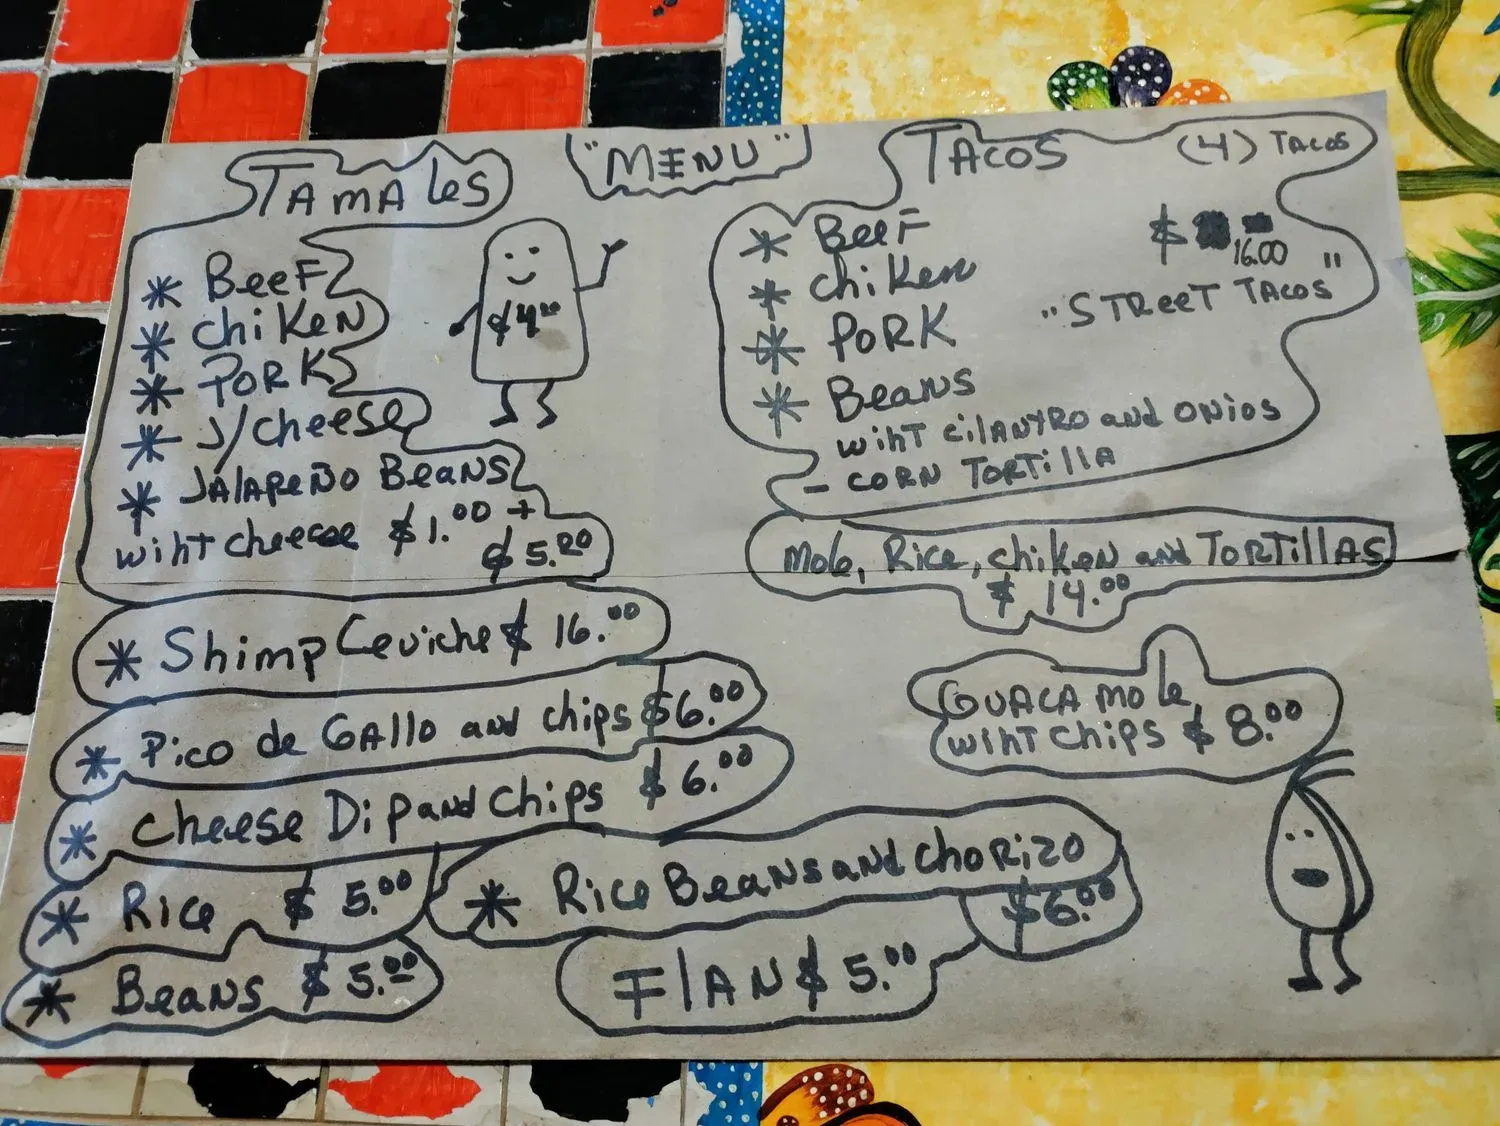 "MENU"
TAMALES
* BEEF
* CHIKEN
* PORK
* J/CHEESE
* JALAPEÑO BEANS
WIHT CHEESE $1.00 +
$5.00
$4.00
TACOS (4) TACOS
* BEEF
* CHIKEN
* PORK
* BEANS
$ 16.00
"STREET TACOS"
WIHT CILANTRO AND ONIOS
- CORN TORTILLA
MOLE, RICE, CHIKEN AND TORTILLAS
$ 14.00
* Shimp Ceviche $ 16.00
* Pico de GALLO and chips $6.00
* Cheese Dip and Chips $ 6.00
* Rice $ 5.00
* Beans $ 5.00
GUACAMOLE,
WIHT CHIPS $ 8.00
* Rice Beans and Chorizo
$6.00
FLAN $ 5.00